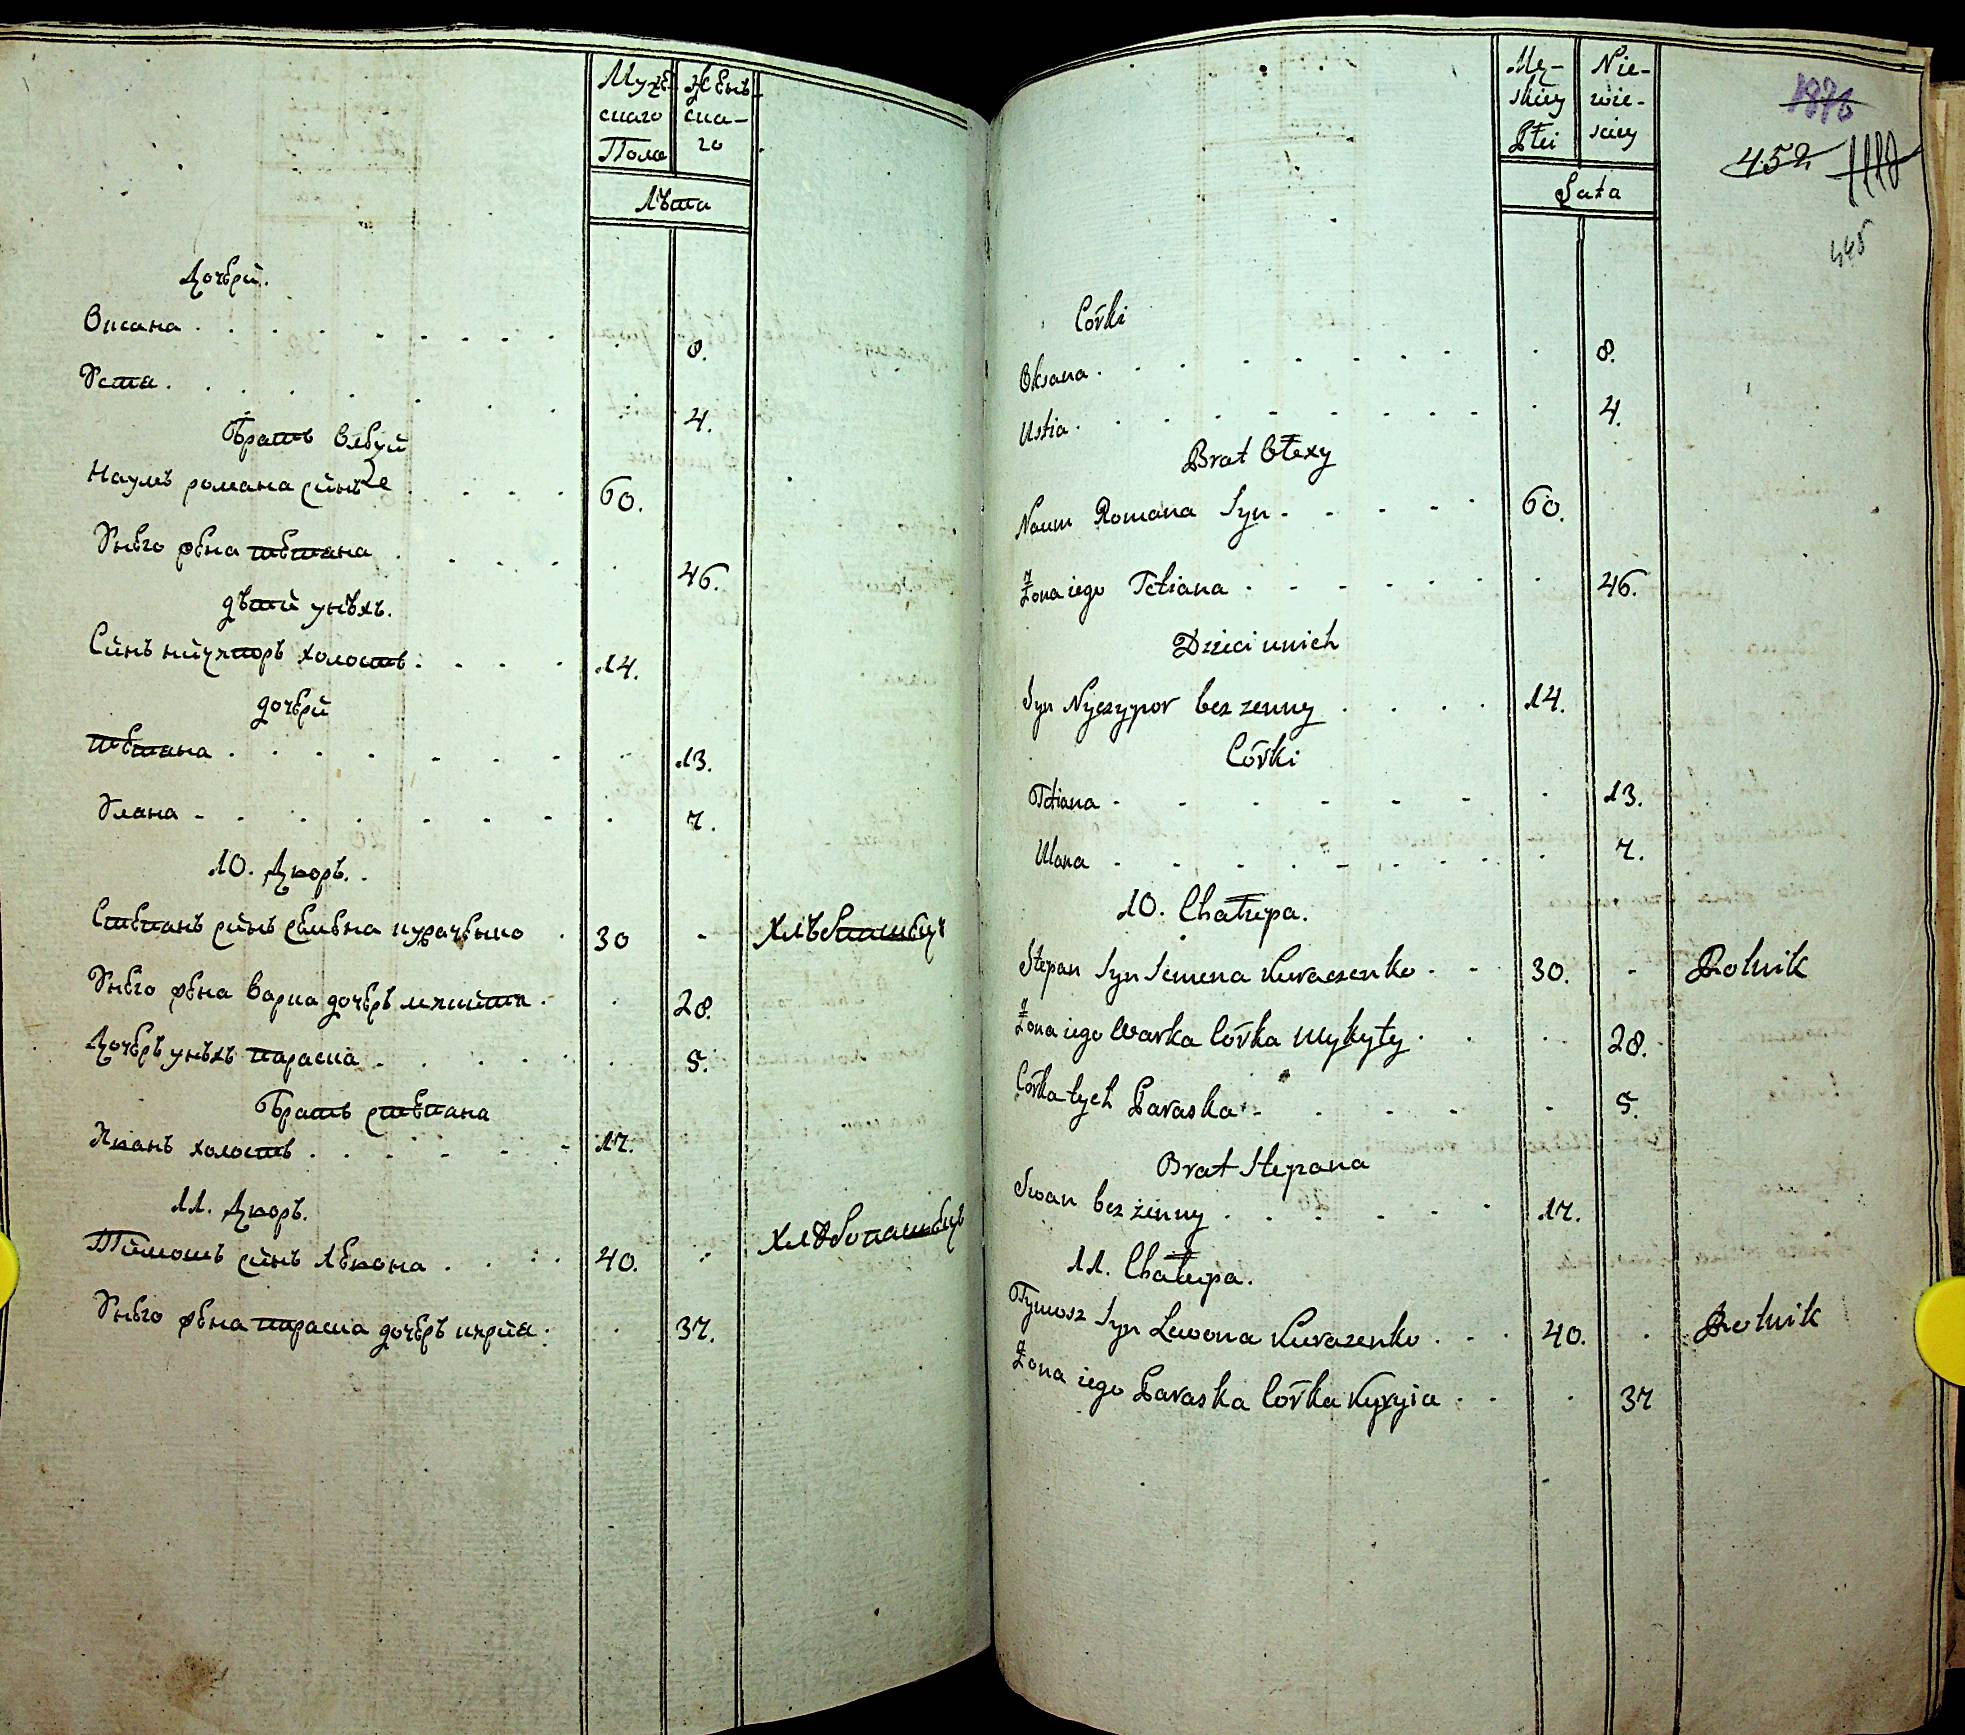 Муже Женъ-
скаго ска-
Пола го
Лѣта
Дочери.
Оксана . . . . . . . 8.
Уста . . . . . . . 4.
Братъ Олексуй
Наумъ романа сынъ . . . . 60.
Унего жена тетяна . . . . 46.
дѣти унѣхъ.
Сынъ ничипоръ холостъ . . . . 14.
дочери
тетяна . . . . . . . 13.
Улана - . . . . . . 7.
10. Дворъ.
Степанъ сынъ семена курачен̾ко . 30 - Хлѣбопашецъ
Унего жена варка дочеръ микиты . . 28.
Дочеръ унѣхъ параска . . . . . 5.
Братъ степана
Иванъ холостъ . . . . . - 17.
11. Дворъ.
Тимошъ сынъ Левона . . . . 40. Хлѣбопашецъ
Унего жена параска дочеръ кирия . . 37.
Mę- Nie-
skiey wie-
Płci sciey
Lata
1876
452
445
Córki
Oksana . . . . . . . . 8.
Ustia . . . . . . . . . 4.
Brat Ołexy
Naum Romana Syn . . . . . 60.
Żona iego Tetiana . . . . . . 46.
Dzieci unich
Syn Nyczypor bez zenny . . . . 14.
Córki
Tetiana - - - - - - - . 13.
Ulana . . . . . . . . . 7.
10. Chałupa.
Stepan Syn Semena Kuraczenko . . 30. - Rolnik
Żona iego Warka Córka Mykyty . . . . 28.
Córka tych Paraska . . . . . . 5.
Brat Stepana
Iwan bez żenny . . . . . . 17.
11. Chałupa.
Tymosz Syn Lewona Kurazenko . . . 40. . Rolnik
Żona iego Paraska Córka Kyryia . . . 37